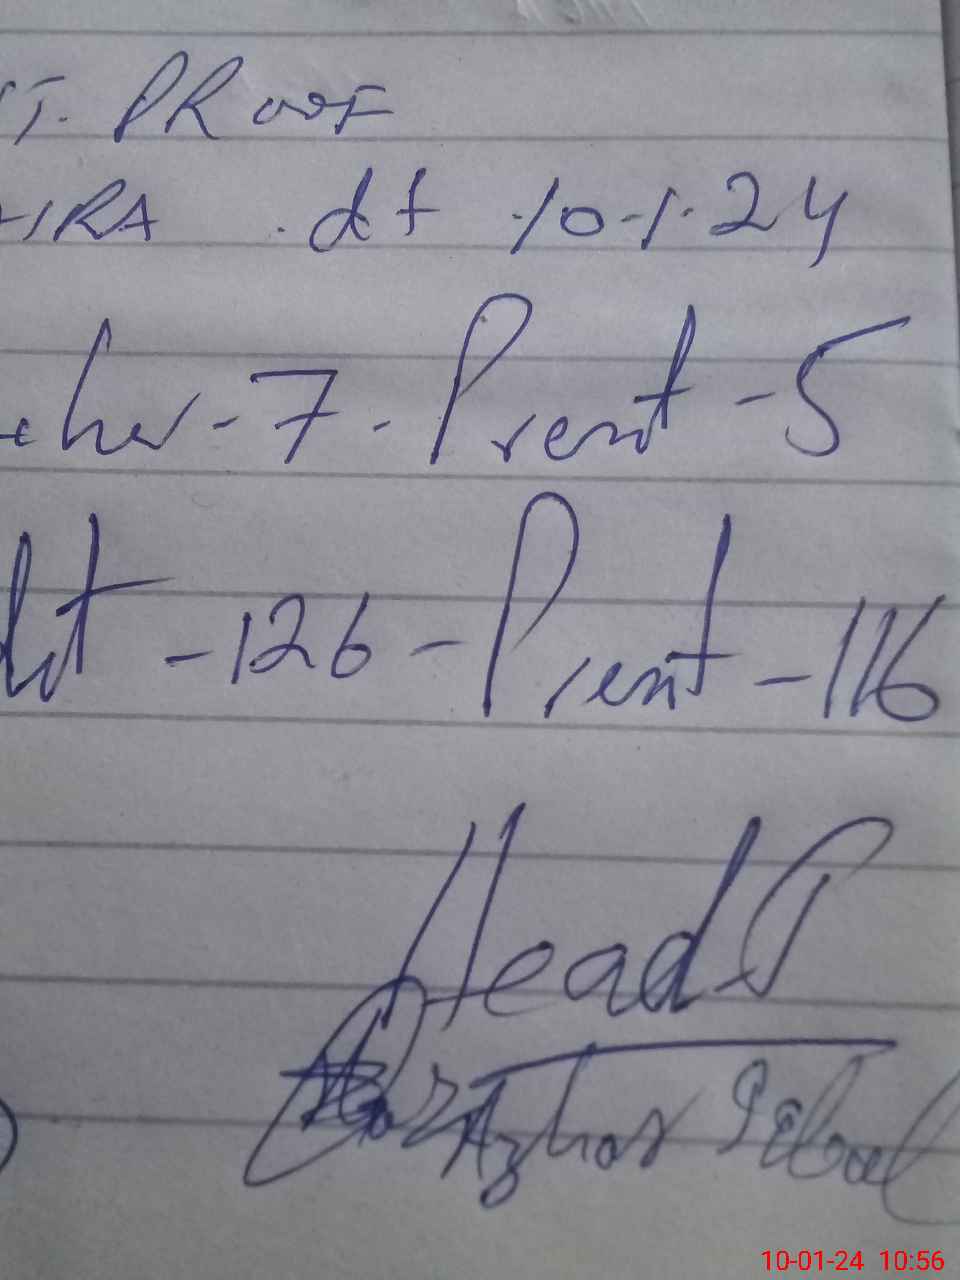 T. PROOF
IRA . dt 10-1-24
cher - 7 - Present - 5
dt - 126 - Present - 116
Head T
Azhar Iqbal
10-01-24 10:56